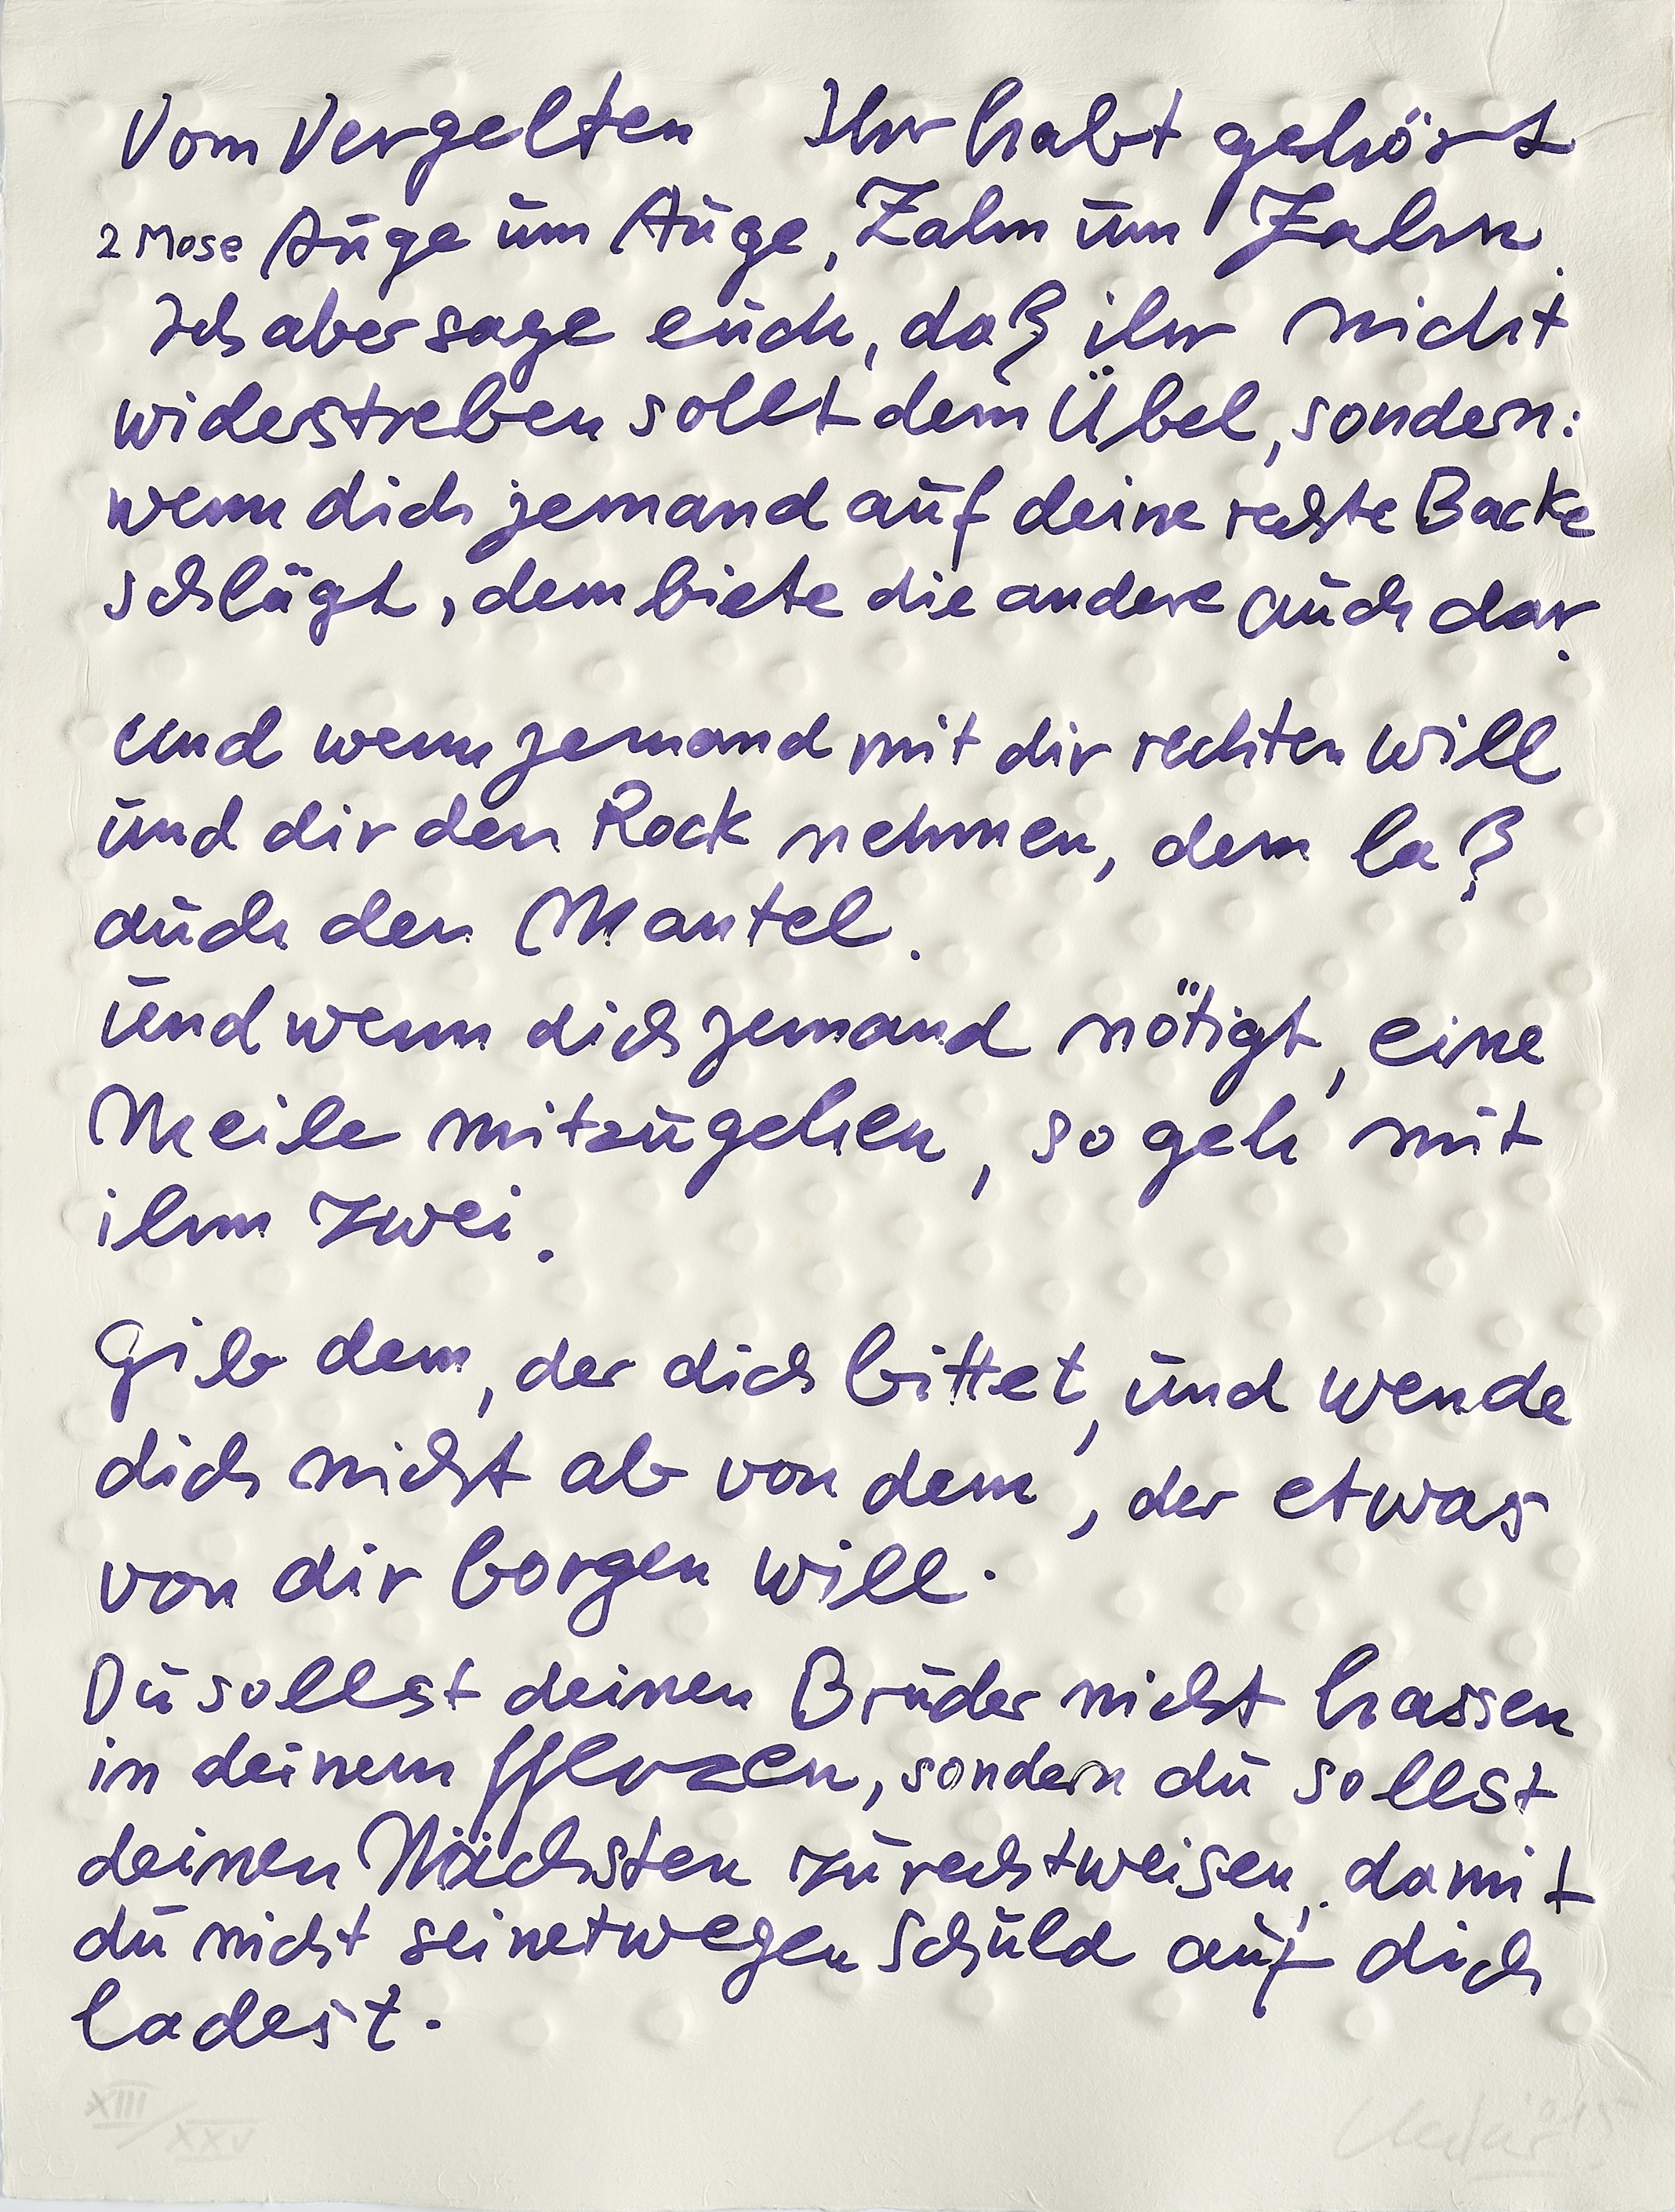 Vom Vergelten Ihr habt gehört
2 Mose Auge um Auge, Zahn um Zahn.
Ich aber sage euch, daß ihr nicht
widerstreben sollt dem Übel, sondern:
wenn dich jemand auf deine rechte Backe
schlägt, dem biete die andere auch dar.
Und wenn jemand mit dir rechten will
und dir den Rock nehmen, dem laß
auch den Mantel.
Und wenn dich jemand nötigt, eine
Meile mitzugehen, so geh mit
ihm zwei.
Gib dem, der dich bittet, und wende
dich nicht ab von dem, der etwas
von dir borgen will.
Du sollst deinen Bruder nicht hassen
in deinem Herzen, sondern du sollst
deinen Nächsten zurechtweisen, damit
du nicht seinetwegen Schuld auf dich
ladest.
XIII/XXV